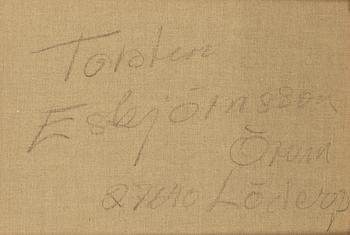 Torsten
Esbjörnsson
Örum
27640 Löderup